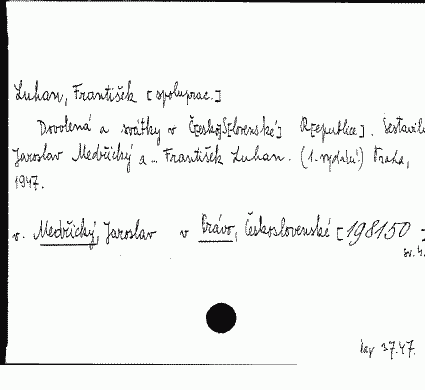 Luhan, František [spoluprac.]
Dovolená a svátky v Č[esko]S[lovenské] R[epublice]. Sestavili
Jaroslav Medřický a ... František Luhan. (1. vydání) Praha,
1947.
v. Medřický, Jaroslav v Právo, Československé [198150
sv. 4.
27.47.